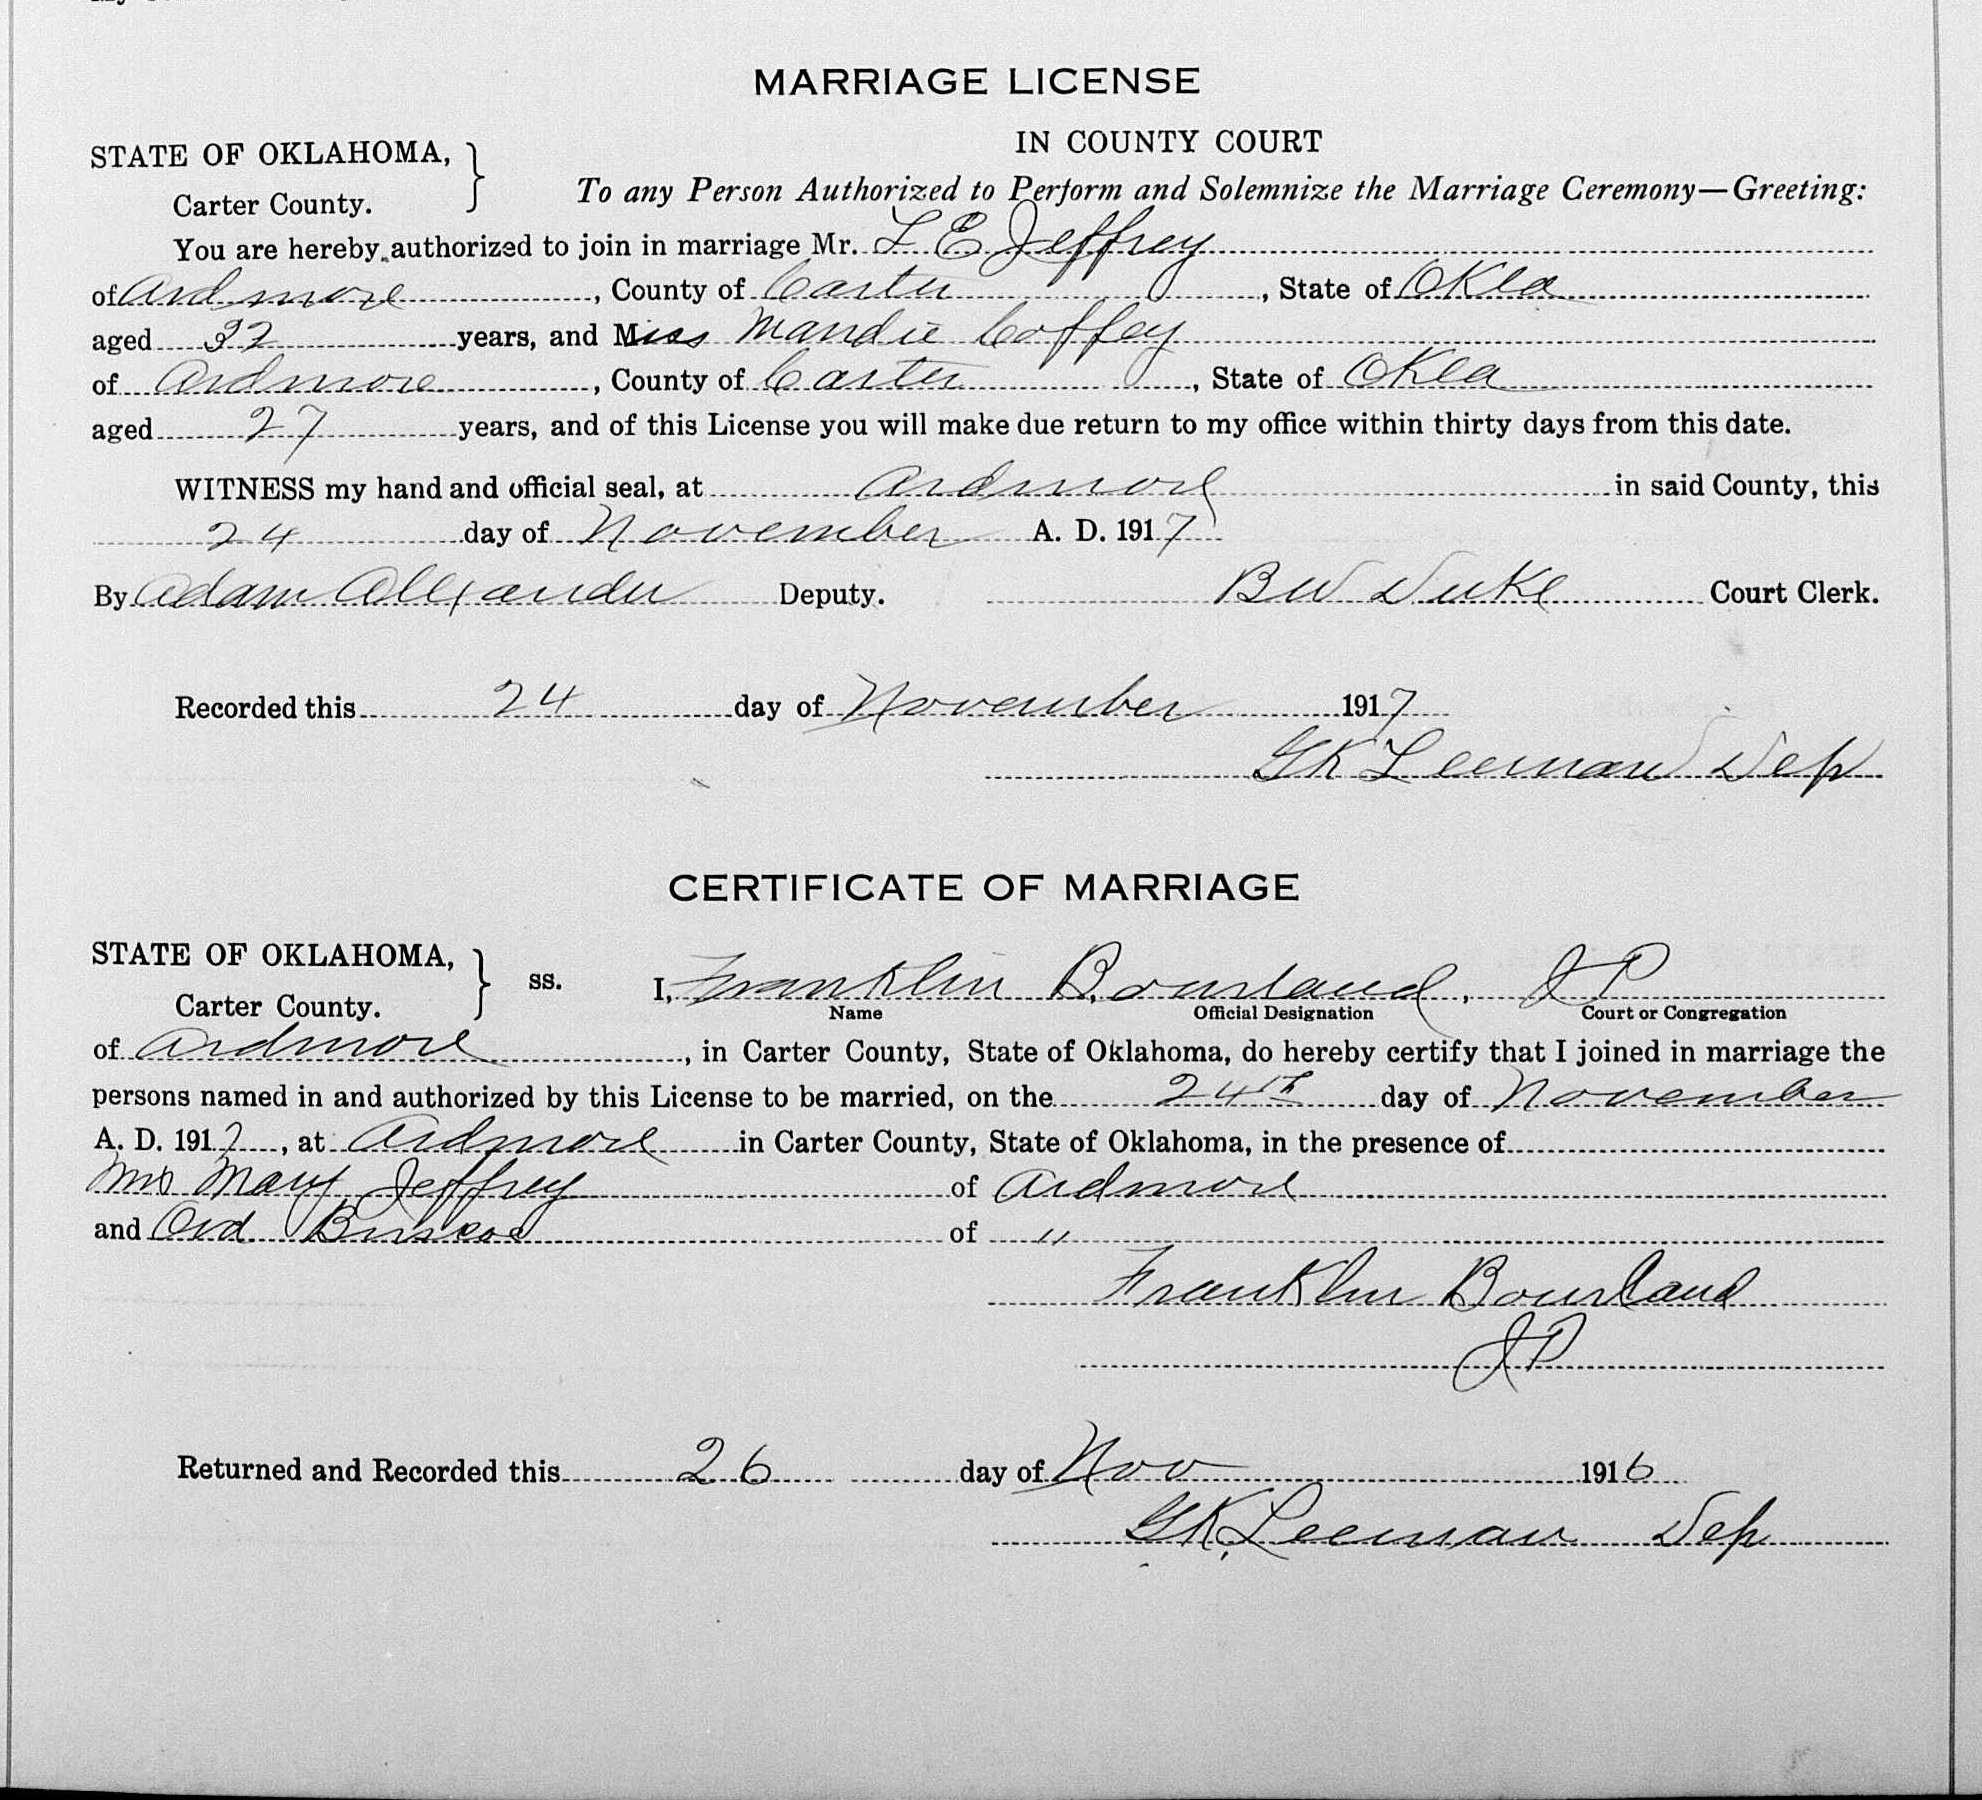 MARRIAGE LICENSE
IN COUNTY COURT
STATE OF OKLAHOMA,
Carter County.
To any Person Authorized to Perform and Solemnize the Marriage Ceremony—Greeting:
You are hereby authorized to join in marriage Mr. L E Jeffrey
of Ardmore, County of Carter, State of Okla
aged 32 years, and Miss Mandie Coffey
of Ardmore, County of Carter, State of Okla
aged 27 years, and of this License you will make due return to my office within thirty days from this date.
WITNESS my hand and official seal, at Ardmore in said County, this
24 day of November A. D. 1917
By Adam Alexander Deputy. B W Duke Court Clerk.
Recorded this 24 day of November 1917
GK Leeman Dep
CERTIFICATE OF MARRIAGE
STATE OF OKLAHOMA,
Carter County.
ss. I, Franklin Bourland, JP
Name Official Designation Court or Congregation
of Ardmore, in Carter County, State of Oklahoma, do hereby certify that I joined in marriage the
persons named in and authorized by this License to be married, on the 24th day of November
A. D. 1917, at Ardmore in Carter County, State of Oklahoma, in the presence of
Mrs Mary Jeffrey of Ardmore
and Ord Briscoe of "
Franklin Bourland
JP
Returned and Recorded this 26 day of Nov 1916
GK Leeman Dep